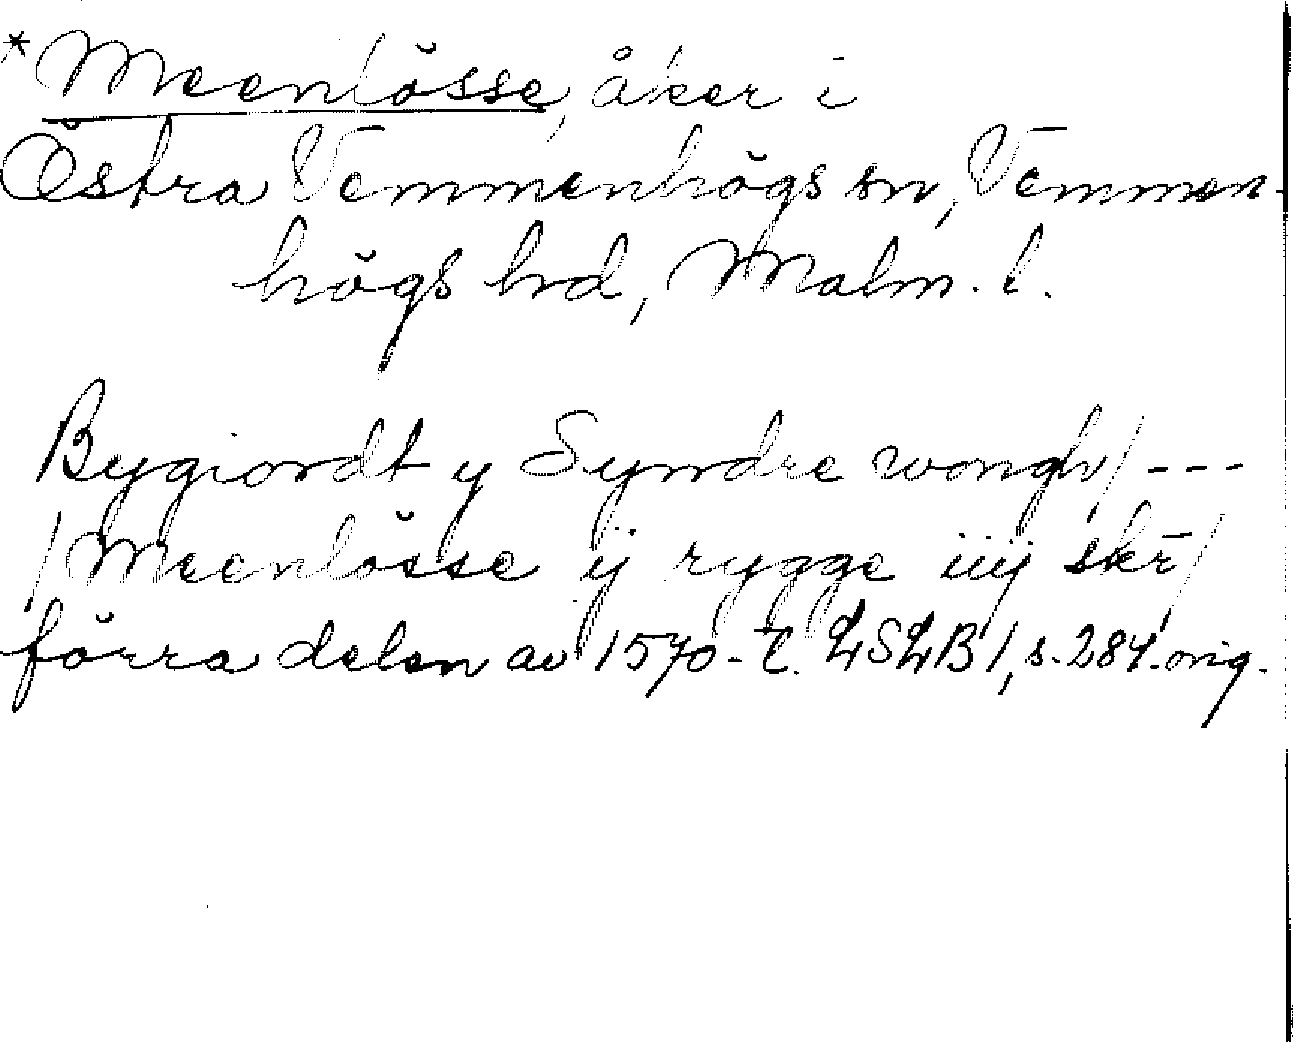 *Meenlösse, åker i
Östra Vemmenhögs sn, Vemmen-
högs hd, Malm. l.
Bygiordt y Syndre wongh/ ---
/Meenlösse ij rygge iiij skr̄/
förra delen av 1570-t. LSLB 1, s. 284. orig.